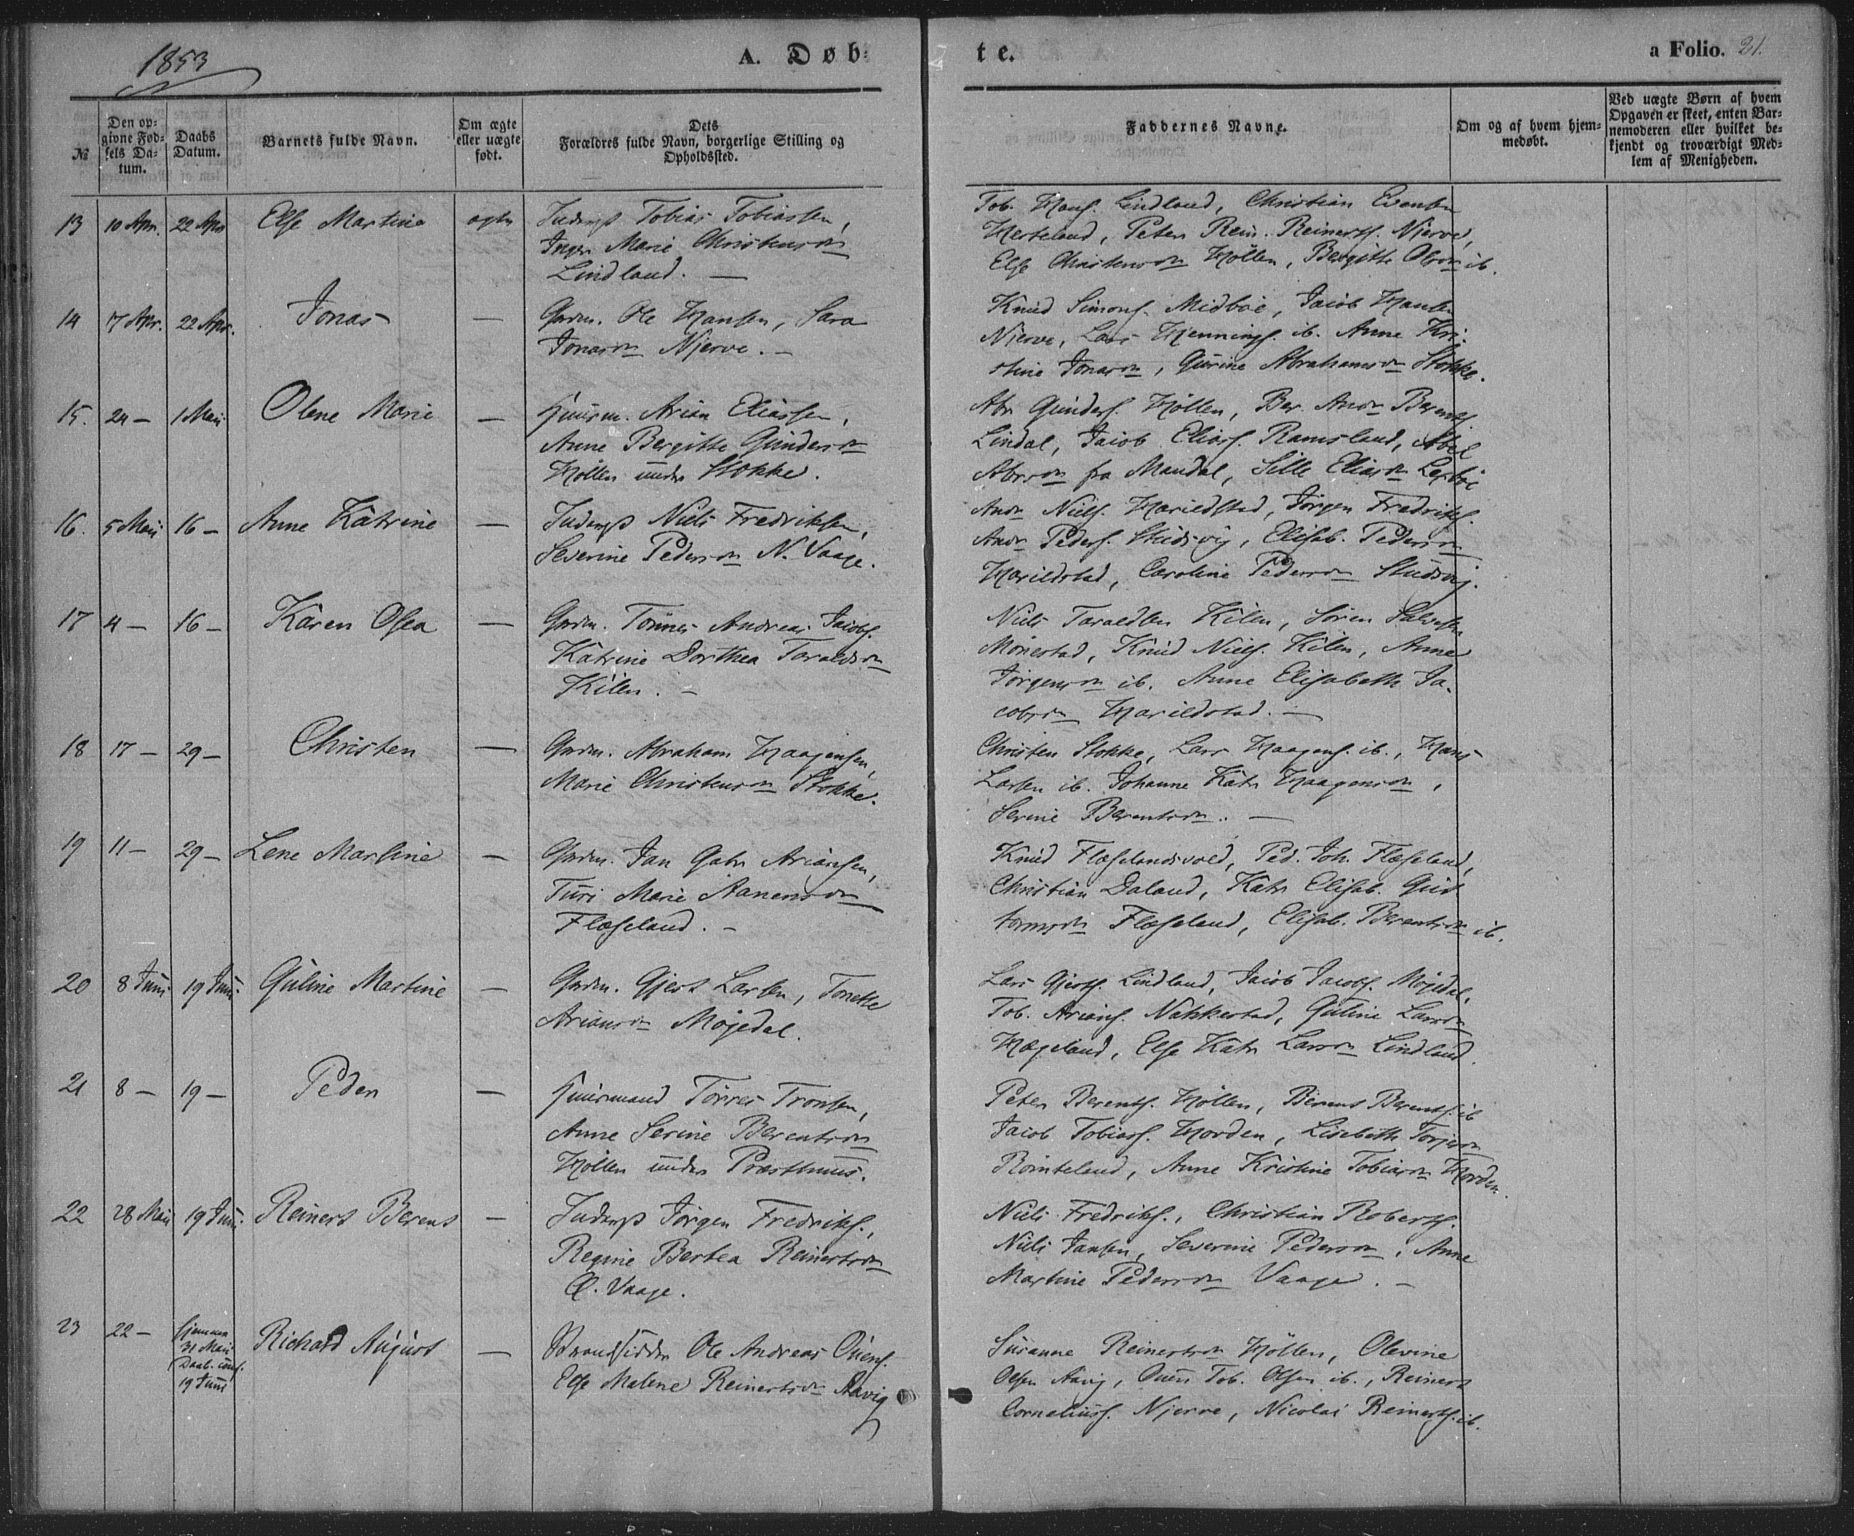 1853
A. Døb-
te.
a Folio. 21.
№
Den op-
givne Fød-
sels Da-
tum.
Daabs
Datum.
Barnets fulde Navn.
Om ægte
eller uægte
født.
Dets
Forældres fulde Navn, borgerlige Stilling og
Opholdssted.
Faddernes Navne.
Om og af hvem hjem-
medøbt.
Ved uægte Børn af hvem
Opgaven er skeet, enten Bar-
nemoderen eller hvilket be-
kjendt og troværdigt Med-
lem af Menigheden.
13 10 Apr. 22 Apr Else Martine ægte
Tobias Tobiassen,
Inger Marie Christens
Lindland. —
Tob. Hans. Lindland, Christian Evensen
Peter Rein. Reinerts. Njerve,
Else Christens Høllen, Bergitte ib.
14 17 Apr. 22 Apr. Jonas —
Gmdm. Ole Hansen, Sara
Jonas Njerve. —
Knud Simons. Midbøe, Jacob Hansen
Njerve, Lars Hennings. ib. Anne Kri-
stine Jonas, Gurine Abrahams Stokke.
15. 24 — 1 Mai Olene Marie —
Huusm. Arian Eliassen,
Anne Bergitte Gunders
Høllen under Stokke.
Abr Gunders. Høllen, Ber. Andr Berents.
Lindal, Jacob Elias. Ramsland, Abel
fra Mandal, Sille Elias
16. 5 Mai 16 — Anne Katrine —
Niels Fredriksen,
Severine Peders N. Vaage.
Andr Niels. Harildstad, Jørgen Fredriks.
Andr Peders. Studsvig, Elisab. Peders
Harildstad, Caroline Peders Studsvig.
17 4 — 16 — Karen Osea —
Gmdm. Tønnes Andreas Jacobs.
Katrine Dorthea Taralds
Kilen. —
Niels Taraldsen Kilen, Søren Salvesen
Monestad, Knud Niels. Kilen, Anne
Jørgens ib. Anne Elisabeth Ja-
cobs Harildstad. —
18 17 — 29 — Christen —
Gmdm. Abraham Haagensen,
Marie Christens Stokke.
Christen Stokke, Lars Haagens. ib., Hans
Larsen ib. Johanne Katr Haagens,
Serine Berents. —
19 11 — 29 — Lene Martine —
Gmdm. Jan Gabr Ariansen,
Turi Marie Aanens
Flæseland. —
Knud Flæselandsvold, Ped. Joh. Flæseland,
Christian Daland, Katr Elisab. Gut
torms Flæseland, Elisab. Berents ib.
20 8 Juni 19 Juni. Guline Martine —
Gmdm. Gjert Larsen, Tonette
Arians Møgedal.
Lars Gjerts. Lindland, Jacob Jacobs. Møgedal,
Tob. Arians. Nakkestad, Guline Lars
Hægeland, Else Katr Lars Lindland.
21 8 — 19 — Peder —
Huusmand Tørres Tronsen,
Anne Serine Berents
Høllen under Præsthuus.
Peter Berents. Høllen, Berents. ib
Jacob Tobias. Horden, Lisebeth
Anne Kristine Tobias Horden.
22 28 Mai 19 Juni. Reinert Berens —
Jørgen Fredriks.,
Regine Bertea Reinerts
Ø. Vaage.
Niels Fredriks., Christian Roberts.
Niels Jansen, Severine Peders, Anne
Martine Peders Vaage. —
23 22 — hjemme
31 Mai
Daab. conf.
19 Juni
Richard August —
Strandsidder Ole Andreas Ouens.
Else Malene Reinerts Aavig
Susanne Reinerts Høllen, Olevine
Olsen Aavig, Ouen Tob. Olsen ib., Reinert
Cornelius. Njerve, Nicolai Reinerts. ib.